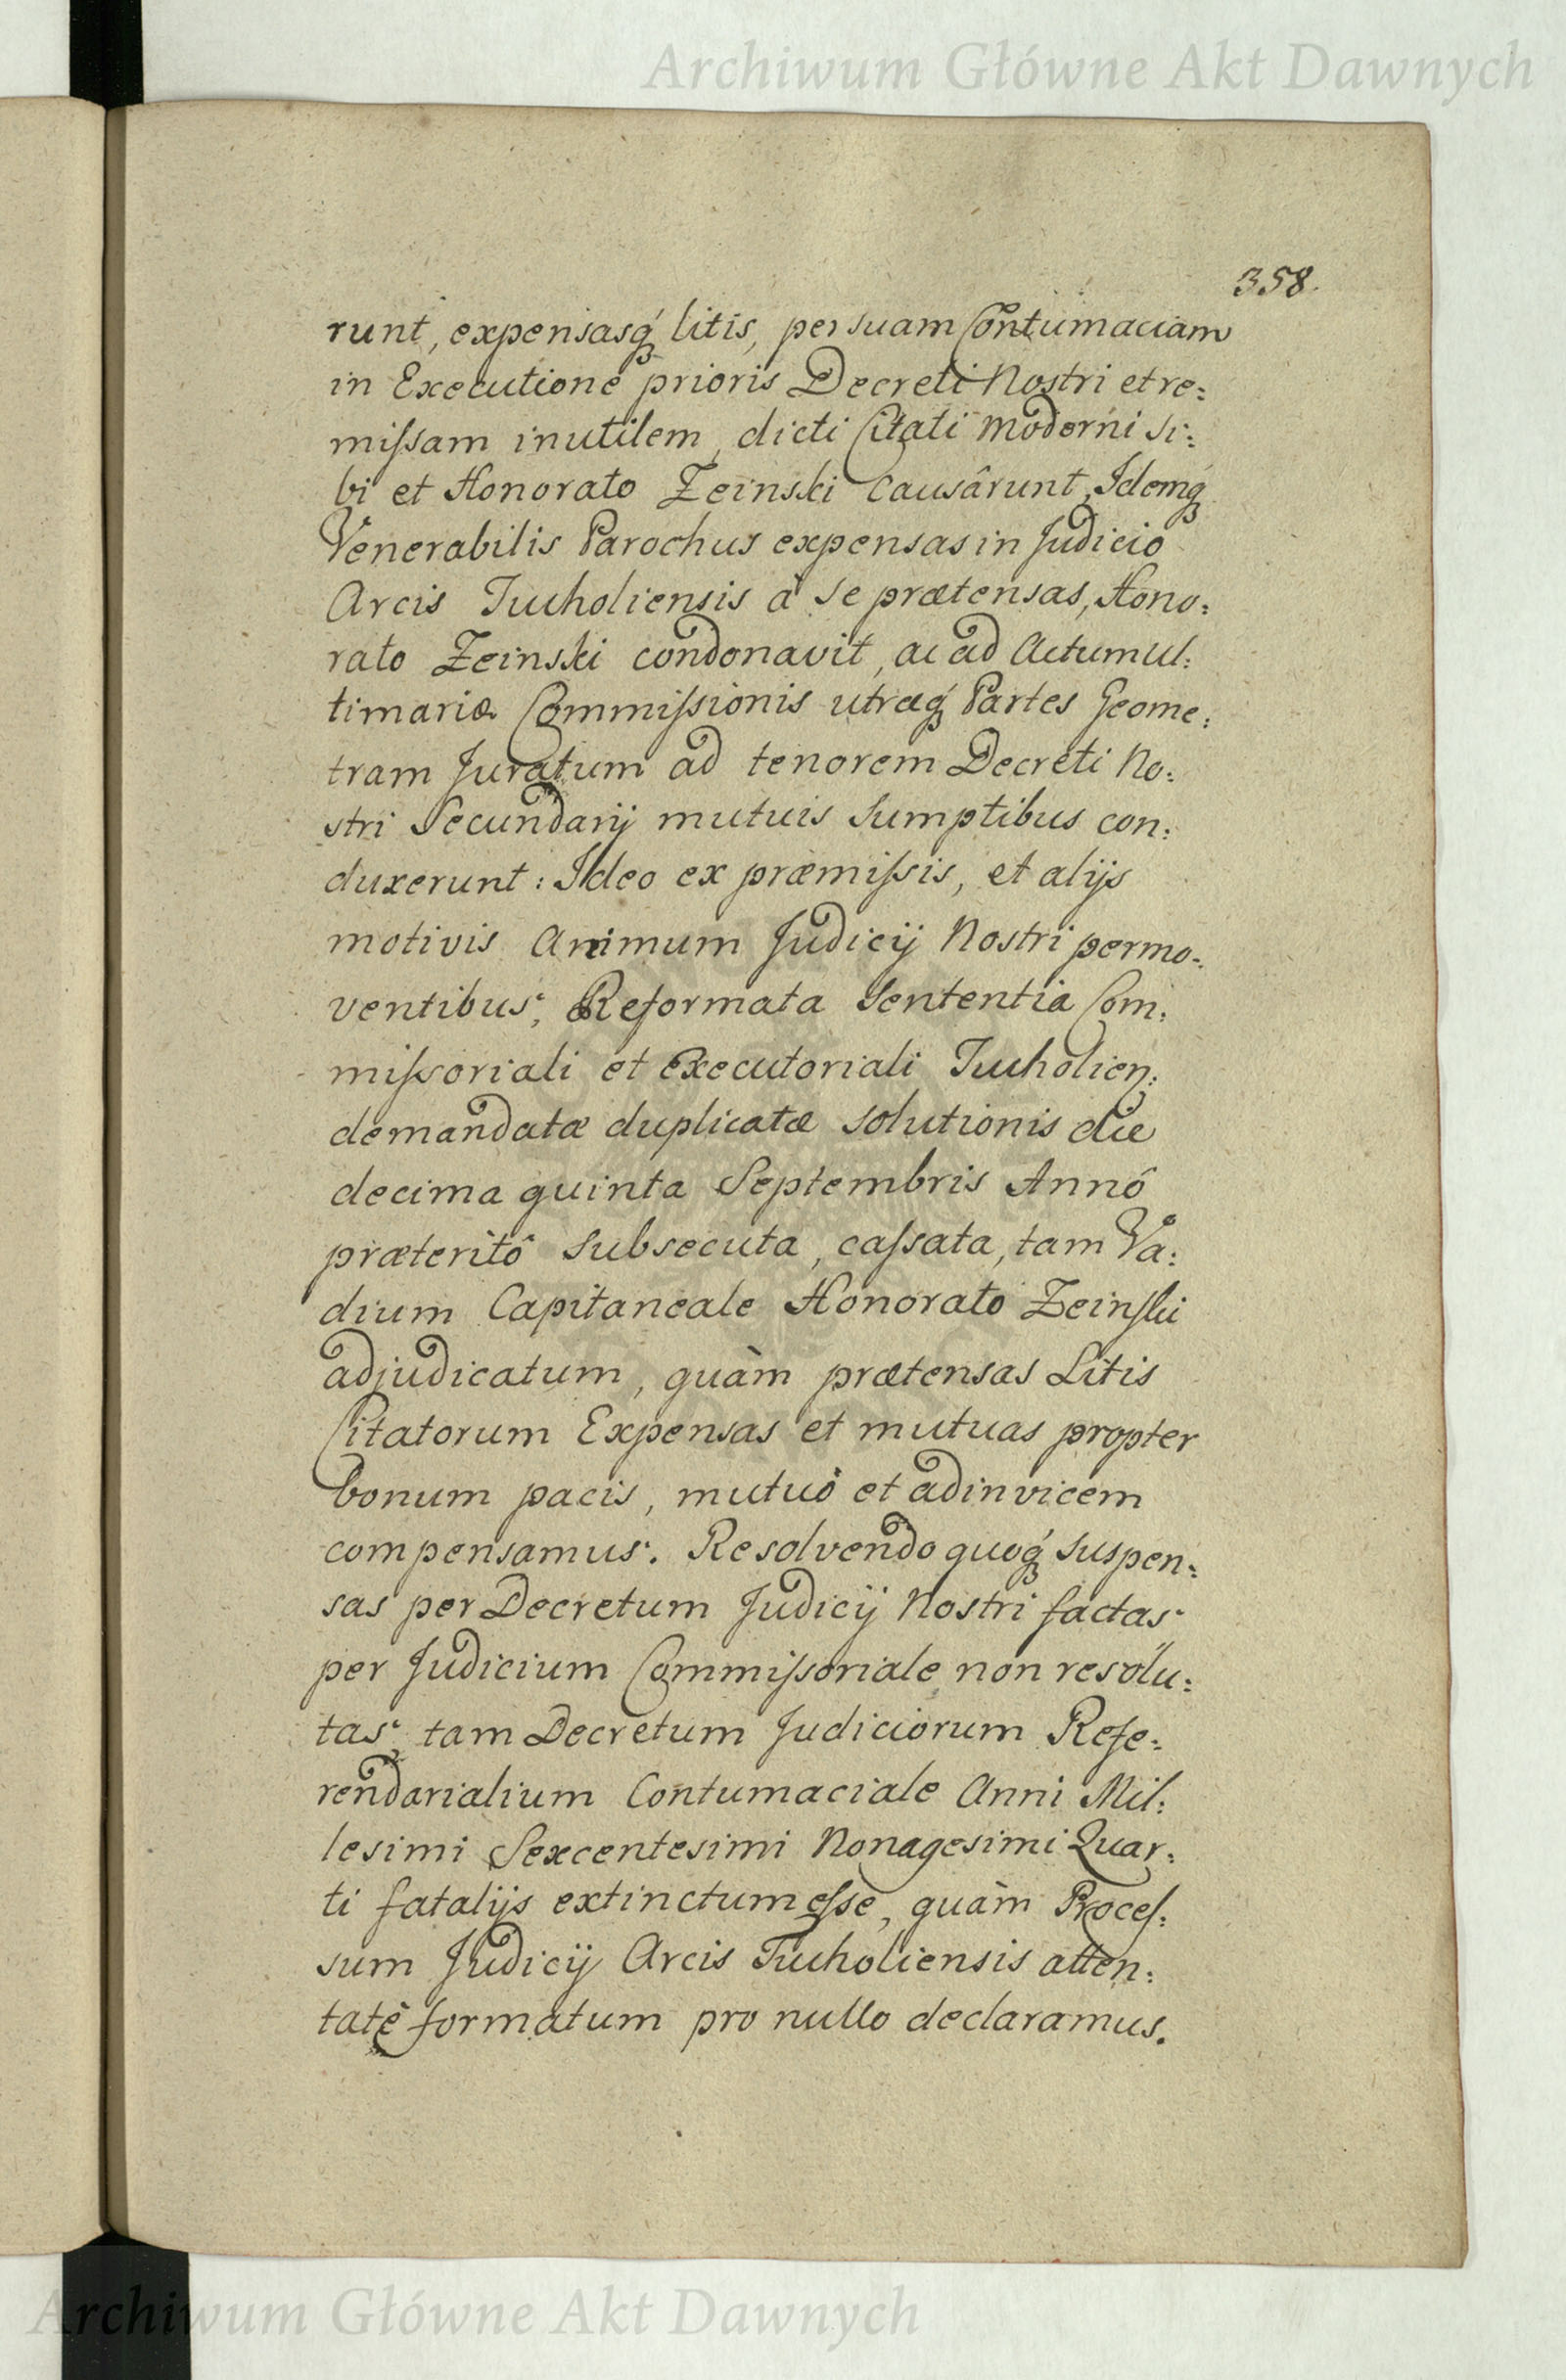 Archiwum Główne Akt Dawnych
358.
runt, expensasq́ litis, per suam Contumaciam
in Executione prioris Decreti Nostri et re:
miſsam inutilem, dicti Citati moderni si:
bi et Honorato Zeinski Causârunt, Idemq́
Venerabilis Parochus expensas in Judicio
Arcis Tucholiensis à se prætensas, Hono:
rato Zeinski condonavit, ac ad Actum Ul:
timariæ Commiſsionis utræq́ Partes Geome:
tram Juratum ad tenorem Decreti No:
stri Secundarij mutuis sumptibus con:
duxerunt: Ideo ex præmiſsis, et alijs
motivis Animum Judicij Nostri permo:
ventibus, Reformata Sententia Com:
miſsoriali et Executoriali Tucholien:
demandatæ duplicatæ solutionis die
decima quinta Septembris Annô
præteritô subsecuta, caſsata, tam Va:
dium Capitaneale Honorato Zeinſki
adjudicatum, quàm prætensas Litis
Citatorum Expensas et mutuas propter
bonum pacis, mutuò et adinvicem
compensamus. Resolvendo quoq́ suspen:
sas per Decretum Judicij Nostri factas
per Judicium Commiſsoriale non resolu:
tas, tam Decretum Judiciorum Refe:
rendarialium Contumaciale Anni Mil:
lesimi Sexcentesimi Nonagesimi Quar:
ti fatalijs extinctum eſse, quàm Proceſ:
sum Judicij Arcis Tucholiensis atten:
tatè formatum pro nullo declaramus.
Archiwum Główne Akt Dawnych